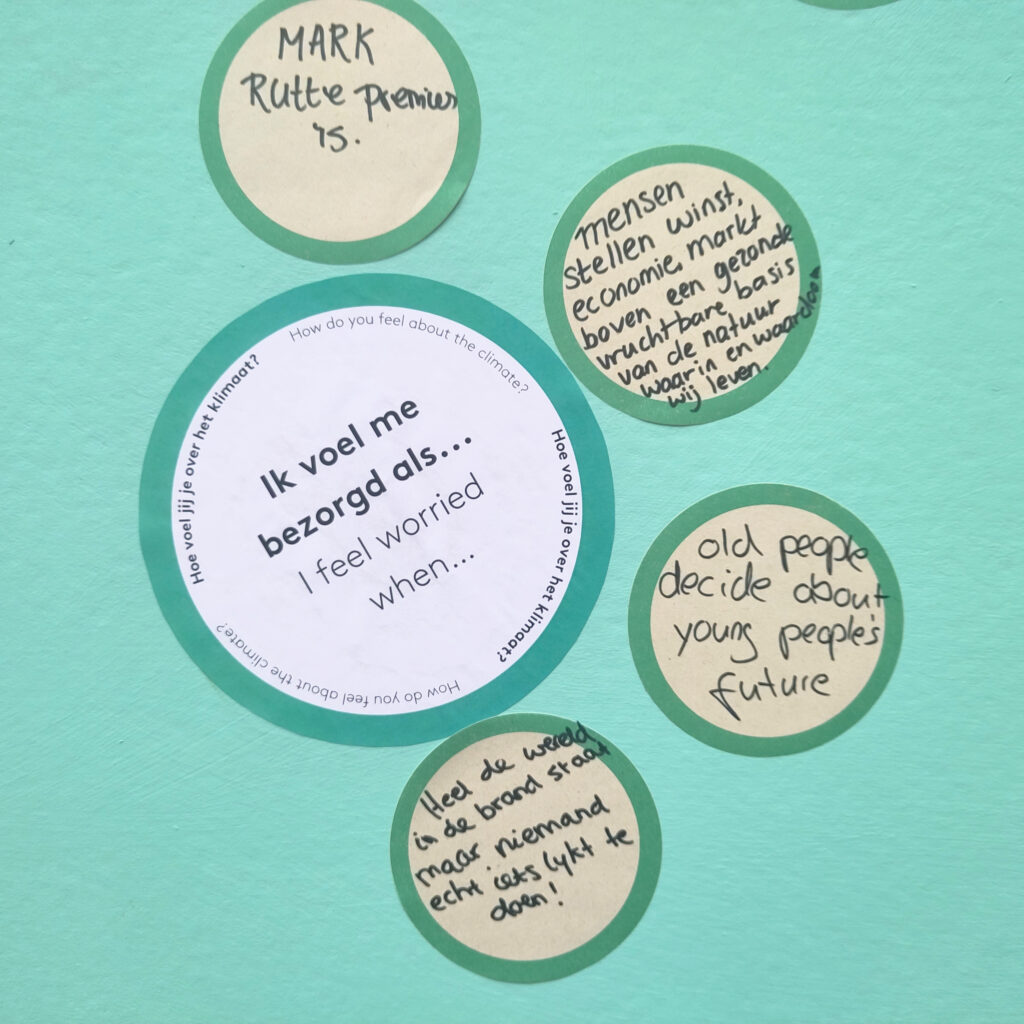 MARK
Rutte premier
is.
mensen
stellen winst,
economie, markt
boven een gezonde
vruchtbare basis
van de natuur
waarin en waardoor
wij leven.
How do you feel about the climate?
Hoe voel jij je over het klimaat?
Ik voel me
bezorgd als...
I feel worried
when...
Hoe voel jij je over het klimaat?
How do you feel about the climate?
old people
decide about
young people's
future
Heel de wereld
in de brand staat
maar niemand
echt iets lykt te
doen!